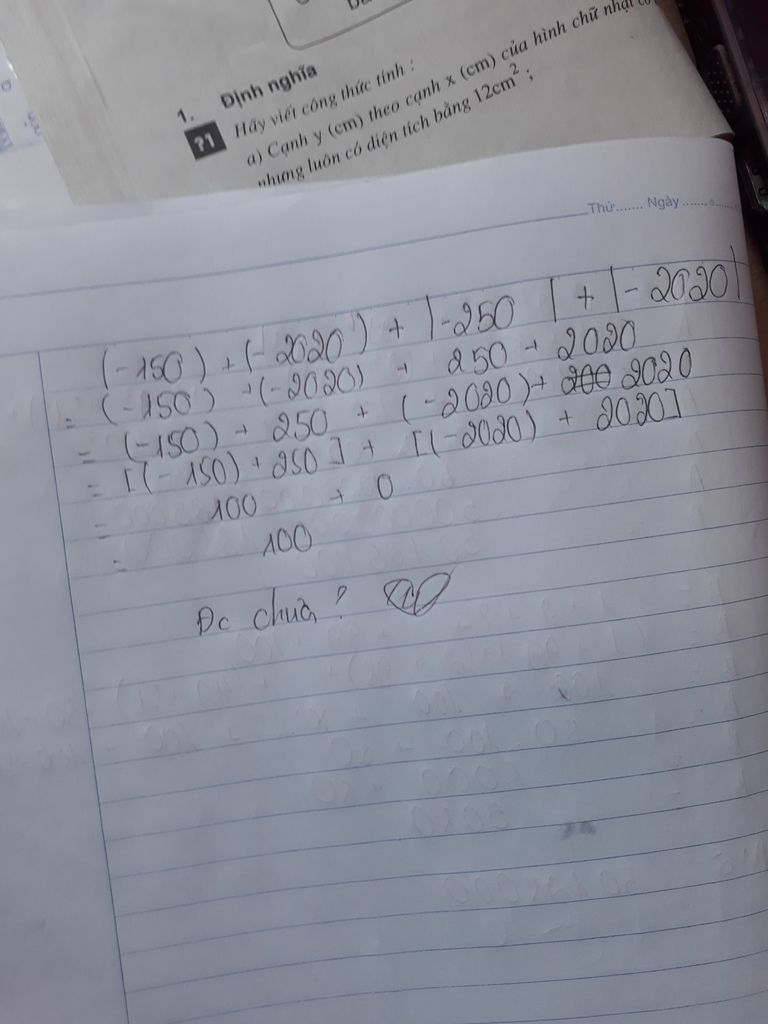 1. Định nghĩa
?1 Hãy viết công thức tính :
a) Cạnh y (cm) theo cạnh x (cm) của hình chữ nhật
nhưng luôn có diện tích bằng 12cm² ;
Thứ....... Ngày
(-150) + (-2020) + |-250 | + |-2020|
= (-150) + (-2020) + 250 + 2020
= (-150) + 250 + (-2020) + 2020
= [(-150) + 250] + [(-2020) + 2020]
= 100 + 0
= 100
Đc chưa?